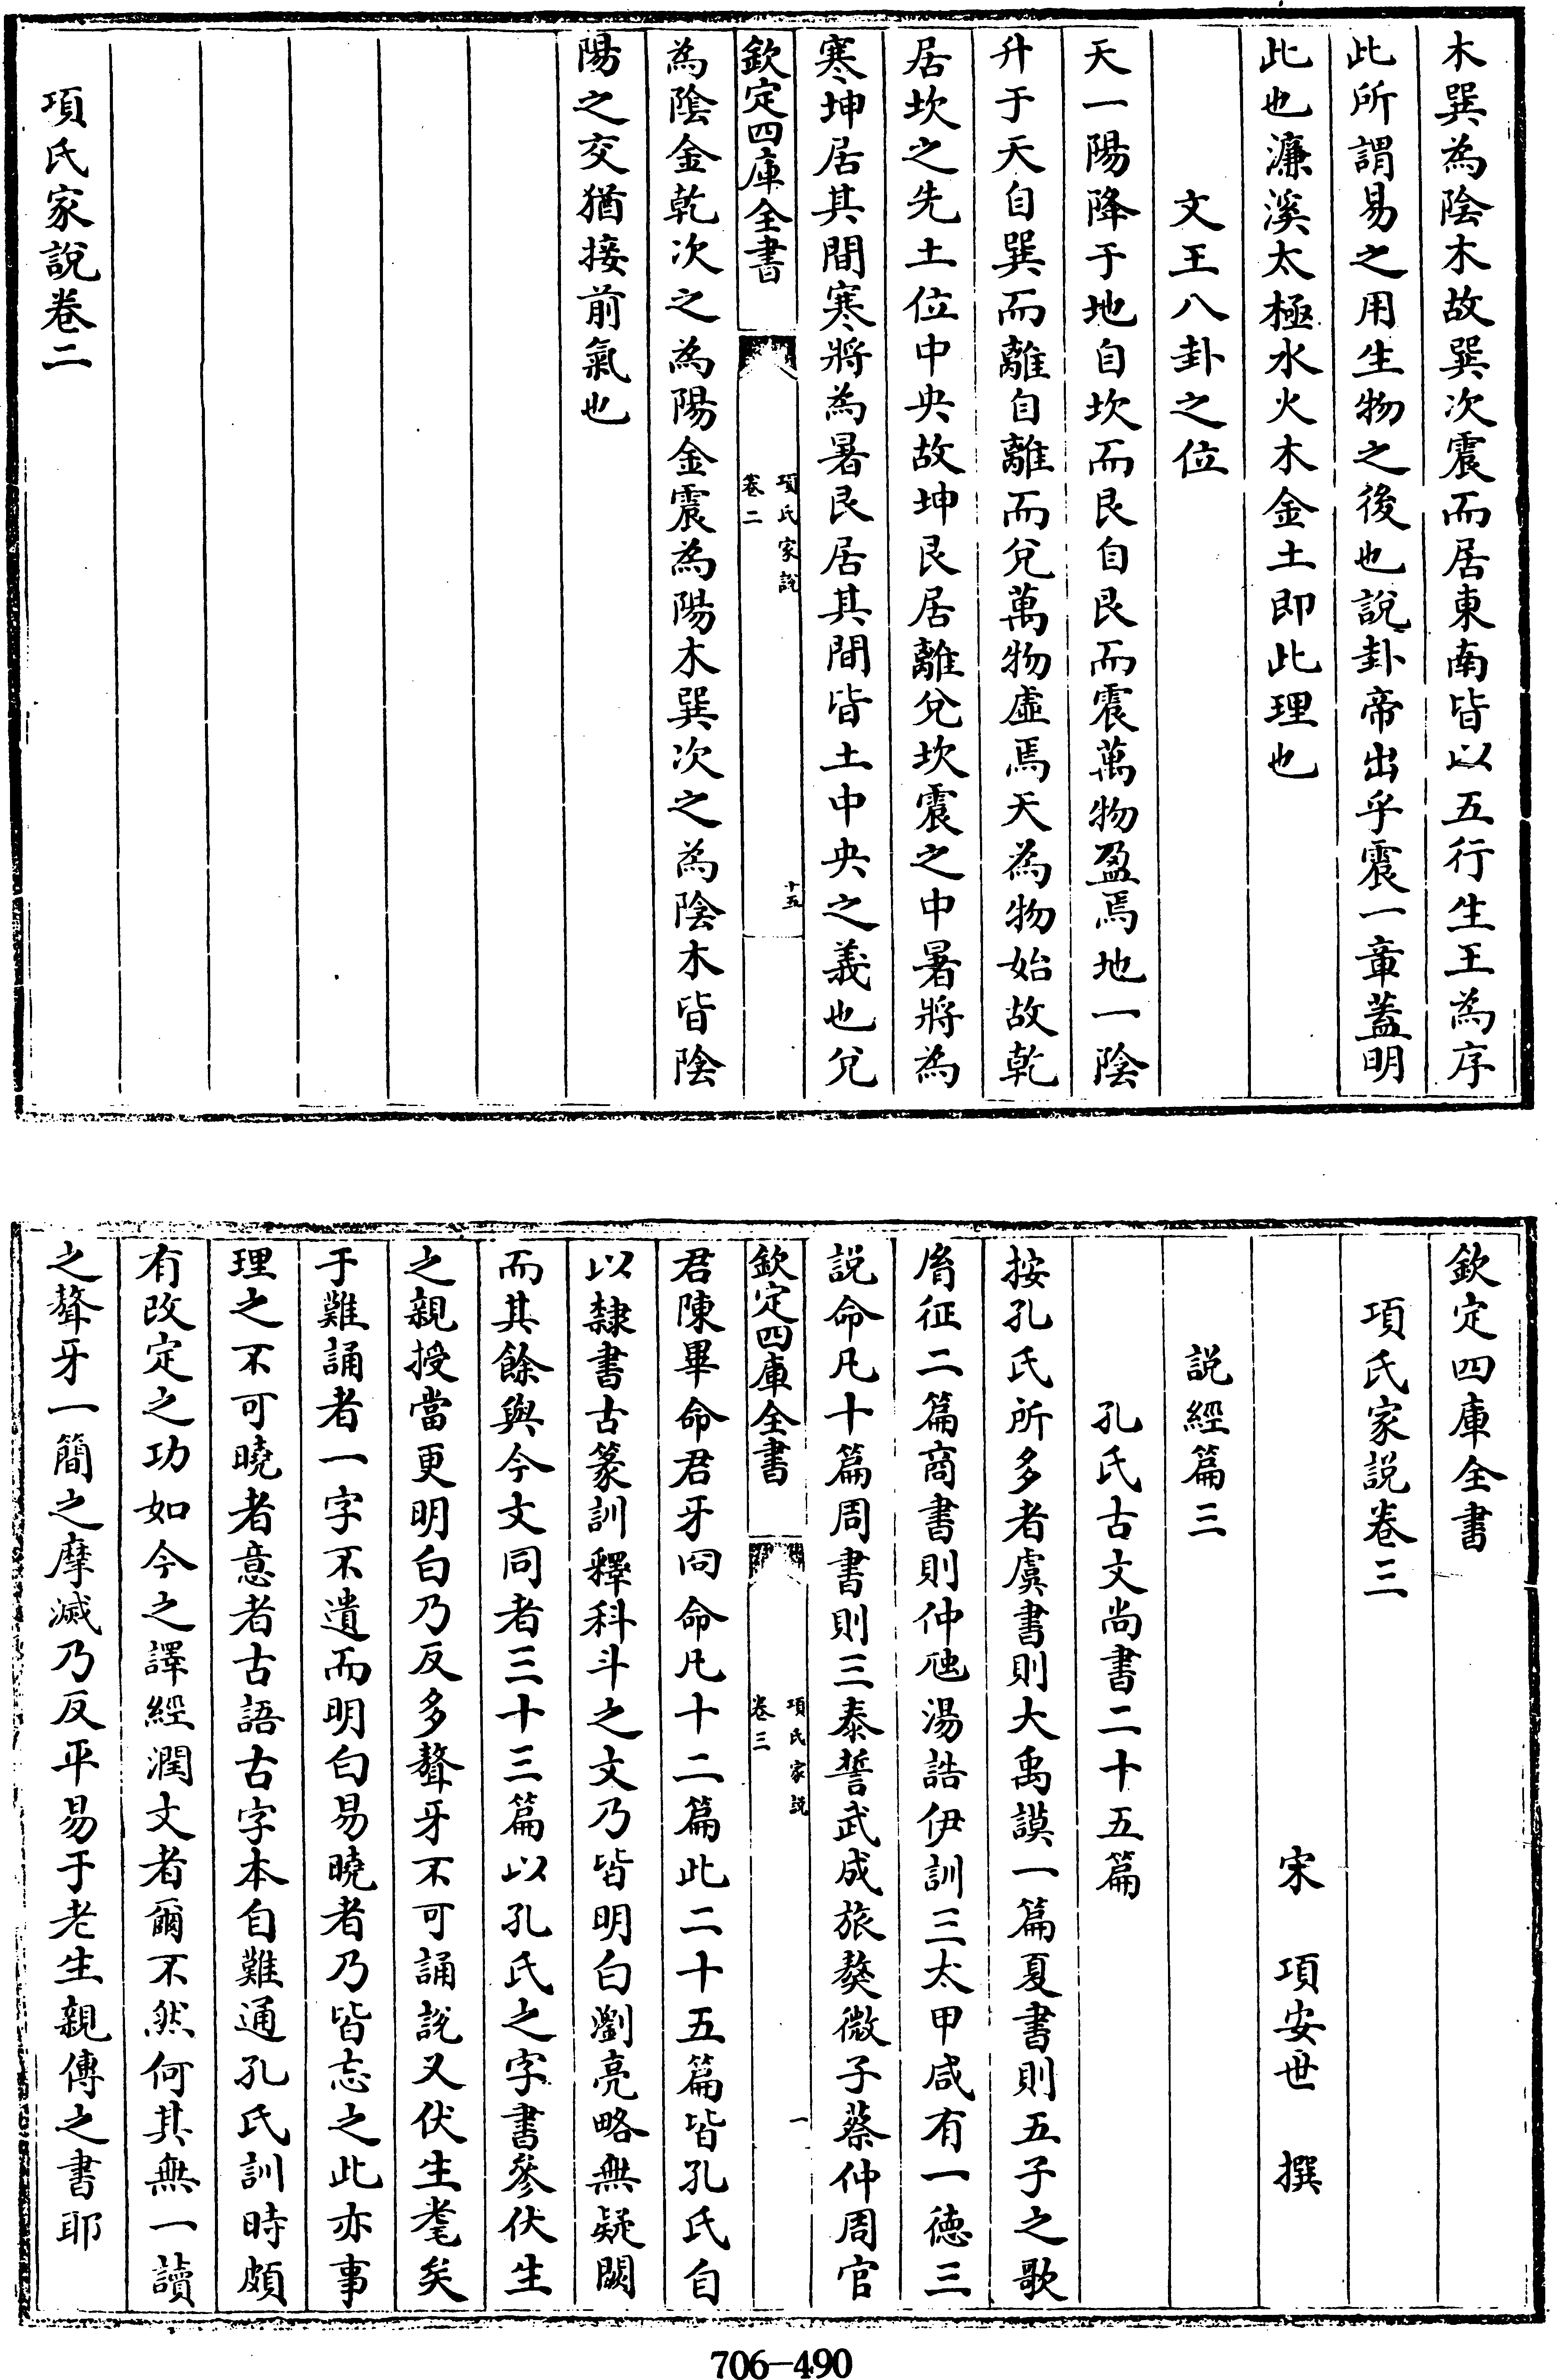 木巽為陰木故巽次震而居東南皆以五行生王為序
此所謂易之用生物之後也說卦帝出乎震一章蓋明
此也濂溪太極水火木金土即此理也
文王八卦之位
天一陽降于地自坎而艮自艮而震萬物盈焉地一陰
升于天自巽而離自離而兌萬物虛焉天為物始故乾
居坎之先土位中央故坤艮居離兌坎震之中暑將為
寒坤居其間寒將為暑艮居其間皆土中央之義也兌
欽定四庫全書
項氏家說
卷二
十五
為陰金乾次之為陽金震為陽木巽次之為陰木皆陰
陽之交猶接前氣也
項氏家說卷二
欽定四庫全書
項氏家說卷三
宋 項安世 撰
說經篇三
孔氏古文尚書二十五篇
按孔氏所多者虞書則大禹謨一篇夏書則五子之歌
胤征二篇商書則仲虺湯誥伊訓三太甲咸有一德三
說命凡十篇周書則三泰誓武成旅獒微子蔡仲周官
欽定四庫全書
項氏家說
卷三
一
君陳畢命君牙冏命凡十二篇此二十五篇皆孔氏自
以隸書古篆訓釋科斗之文乃皆明白瀏亮略無疑闕
而其餘與今文同者三十三篇以孔氏之字書參伏生
之親授當更明白乃反多聱牙不可誦說又伏生耄矣
于難誦者一字不遺而明白易曉者乃皆忘之此亦事
理之不可曉者意者古語古字本自難通孔氏訓時頗
有改定之功如今之譯經潤文者爾不然何其無一讀
之聱牙一簡之摩滅乃反平易于老生親傳之書耶
706-490